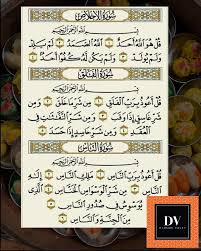 سُورَةُ الإِخْلَاصِ
بِسْمِ اللَّهِ الرَّحْمَٰنِ الرَّحِيمِ
قُلْ هُوَ اللَّهُ أَحَدٌ ۝ اللَّهُ الصَّمَدُ ۝ لَمْ يَلِدْ
وَلَمْ يُولَدْ ۝ وَلَمْ يَكُن لَّهُ كُفُوًا أَحَدٌ ۝
سُورَةُ الْفَلَقِ
بِسْمِ اللَّهِ الرَّحْمَٰنِ الرَّحِيمِ
قُلْ أَعُوذُ بِرَبِّ الْفَلَقِ ۝ مِن شَرِّ مَا خَلَقَ ۝ وَمِن
شَرِّ غَاسِقٍ إِذَا وَقَبَ ۝ وَمِن شَرِّ النَّفَّاثَاتِ فِي
الْعُقَدِ ۝ وَمِن شَرِّ حَاسِدٍ إِذَا حَسَدَ ۝
سُورَةُ النَّاسِ
بِسْمِ اللَّهِ الرَّحْمَٰنِ الرَّحِيمِ
قُلْ أَعُوذُ بِرَبِّ النَّاسِ ۝ مَلِكِ النَّاسِ ۝ إِلَٰهِ
النَّاسِ ۝ مِن شَرِّ الْوَسْوَاسِ الْخَنَّاسِ ۝ الَّذِي
يُوَسْوِسُ فِي صُدُورِ النَّاسِ ۝
مِنَ الْجِنَّةِ وَالنَّاسِ ۝
DV